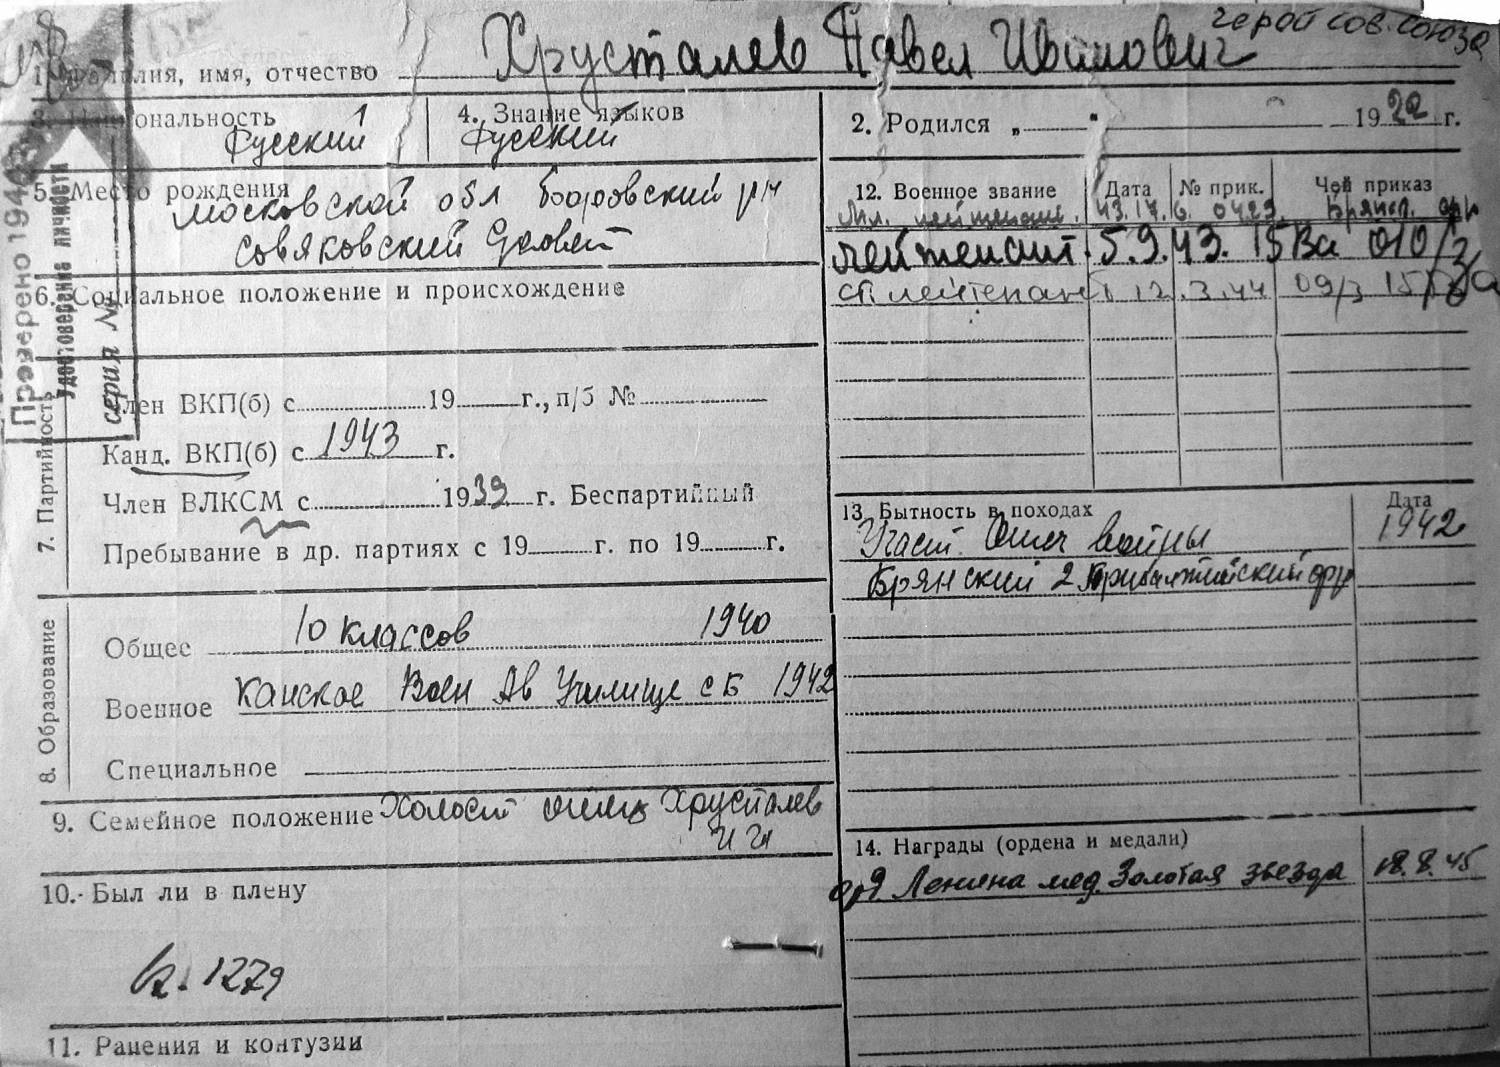 герой сов. союза
1. Фамилия, имя, отчество Хрусталев Павел Иванович
3. Национальность Русский
4. Знание языков Русский
2. Родился „ “ 1922 г.
5. Место рождения Московской обл Боровский рн
Совяковский
6. Социальное положение и происхождение
Проверено 194
Удостоверение личности
серия №
7. Партийность
Член ВКП(б) с 19 г., п/б №
Канд. ВКП(б) с 1943 г.
Член ВЛКСМ с 1939 г. Беспартийный
Пребывание в др. партиях с 19 г. по 19 г.
8. Образование
Общее 10 классов 1940
Военное Канское Воен Ав Училище с Б 1942
Специальное
9. Семейное положение Холост отец Хрусталев
10. Был ли в плену
1279
11. Ранения и контузии
12. Военное звание Дата № прик. Чей приказ
Мл. лейтенант. 43.17.6. 0423 Брянск. фр
лейтенант 5.9.43. 15 Ва 010/з
ст лейтенант 12.3.44 09/з 15 Ва
13. Бытность в походах Дата
Участ. Отеч войны 1942
Брянский 2 Прибалтийский фр
14. Награды (ордена и медали)
орд Ленина мед. Золотая звезда 18.8.45